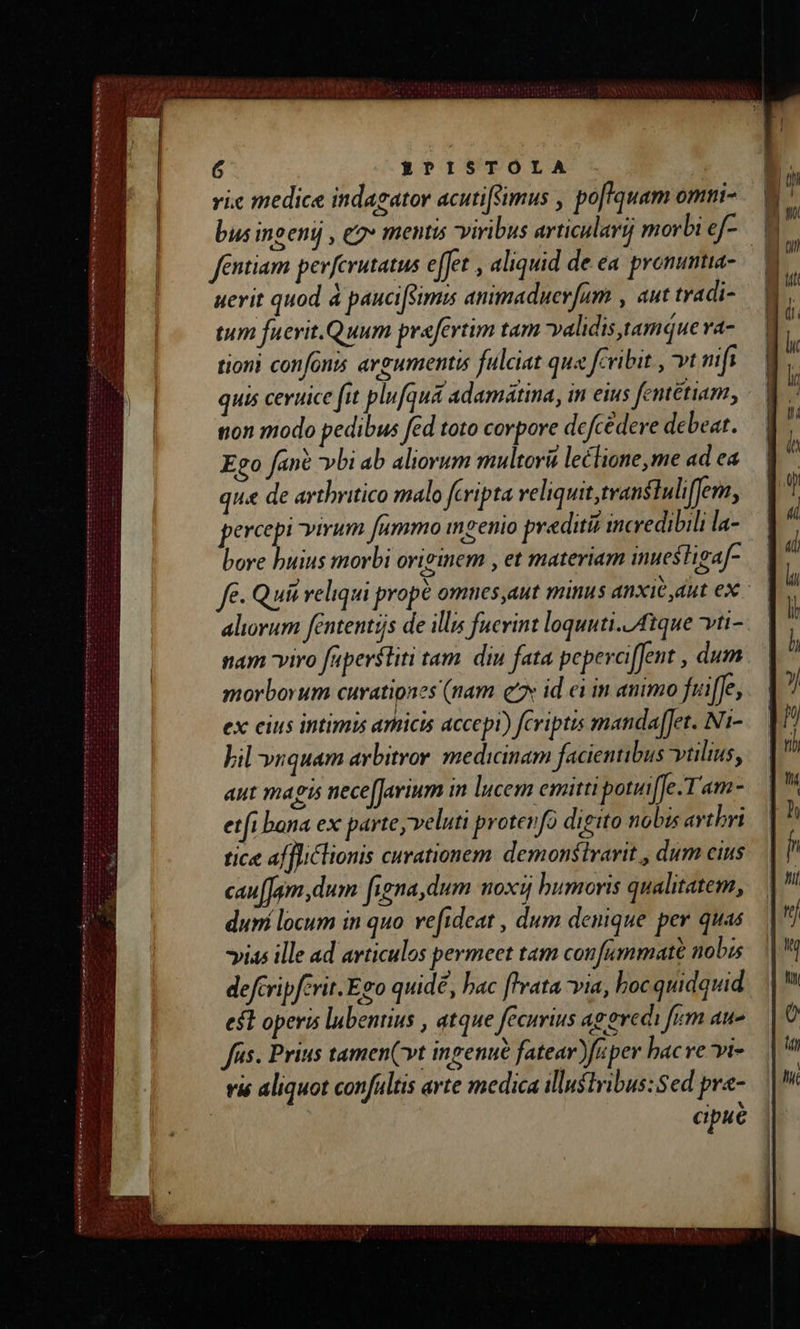 6 EPISTOLA
riæ medicæ indagator acutiſsimus , poſtquam omni-
bus ingenij , & mentis viribus articularij morbi eſ-
ſentiam perſcrutatus eſſet , aliquid de ea pronuntia-
uerit quod à pauciſsimis animaduerſum , aut tradi-
tum fuerit.Quum præſertim tam validis,tamque ra-
tioni conſonis argumentis fulciat quæ ſcribit , vt niſi
quis ceruice ſit pluſquã adamãtina, in eius ſentẽtiam,
non modo pedibus ſed toto corpore deſcẽdere debeat.
Ego ſanè vbi ab aliorum multorũ lectione,me ad ea
quæ de arthritico malo ſcripta reliquit,tranſtuliſſem,
percepi virum ſummo ingenio præditũ incredibili la-
bore huius morbi originem , et materiam inueſtigaſ-
ſe. Quũ reliqui propè omnes,aut minus anxiè,aut ex
aliorum ſententijs de illis fuerint loquuti.Atque vti-
nam viro ſuperſtiti tam diu fata peperciſſent , dum
morborum curationes (nam & id ei in animo fuiſſe,
ex eius intimis amicis accepi) ſcriptis mandaſſet. Ni-
hil vnquam arbitror medicinam facientibus vtilius,
aut magis neceſſarium in lucem emitti potuiſſe.Tam-
etſi bona ex parte,veluti protenſo digito nobis arthri
ticæ afflictionis curationem demonſtrarit , dum eius
cauſſam,dum ſigna,dum noxij humoris qualitatem,
dum locum in quo reſideat , dum denique per quas
vias ille ad articulos permeet tam conſummatè nobis
deſcripſerit.Ego quidẽ, hac ſtrata via, hoc quidquid
eſt operis lubentius , atque ſecurius aggredi ſum au-
ſus. Prius tamen(vt ingenuè fatear)ſuper hac re vi-
ris aliquot conſultis arte medica illuſtribus:Sed præ-
cipuè